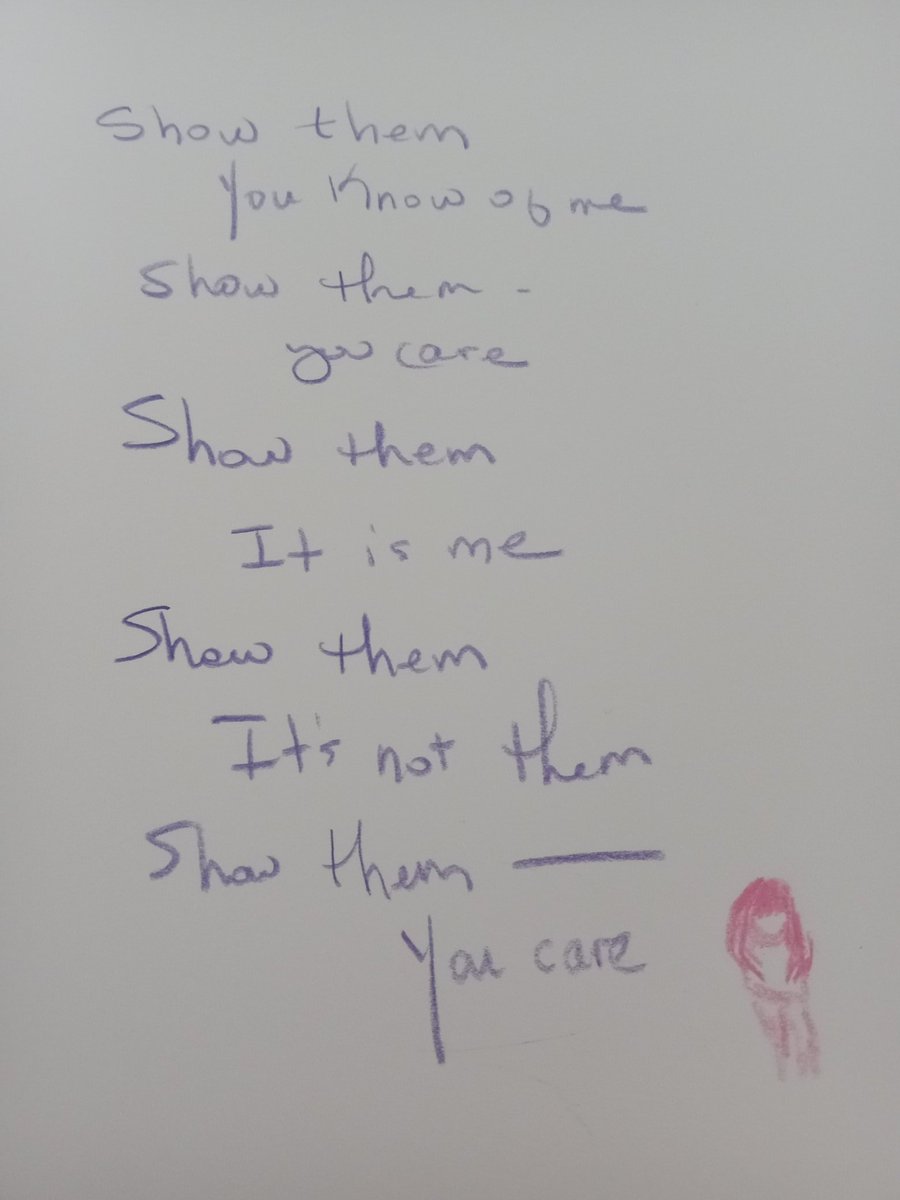 Show them
You Know of me
Show them -
you care
Show them
It is me
Show them
It's not them
Show them —
You care